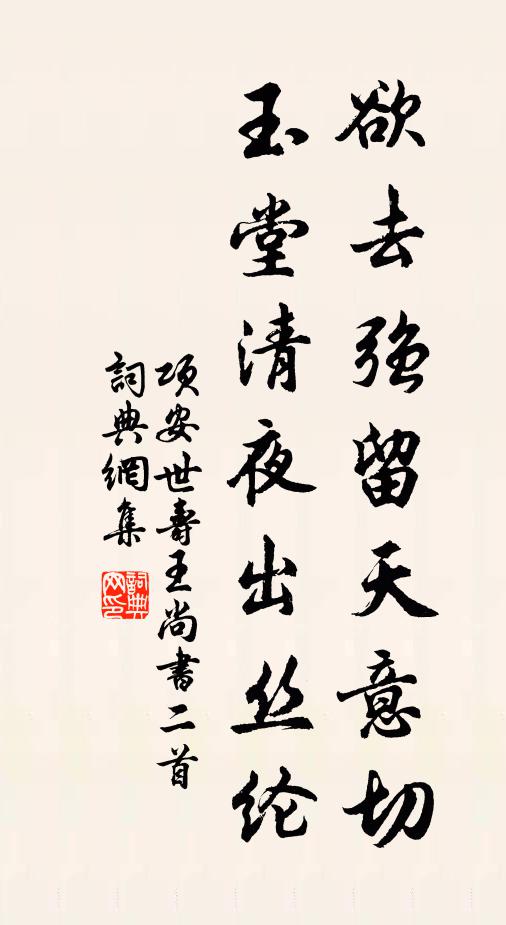 欲去強留天意切
玉堂清夜出丝纶
项安世壽王尚書二首
詞典網集
詞典网印